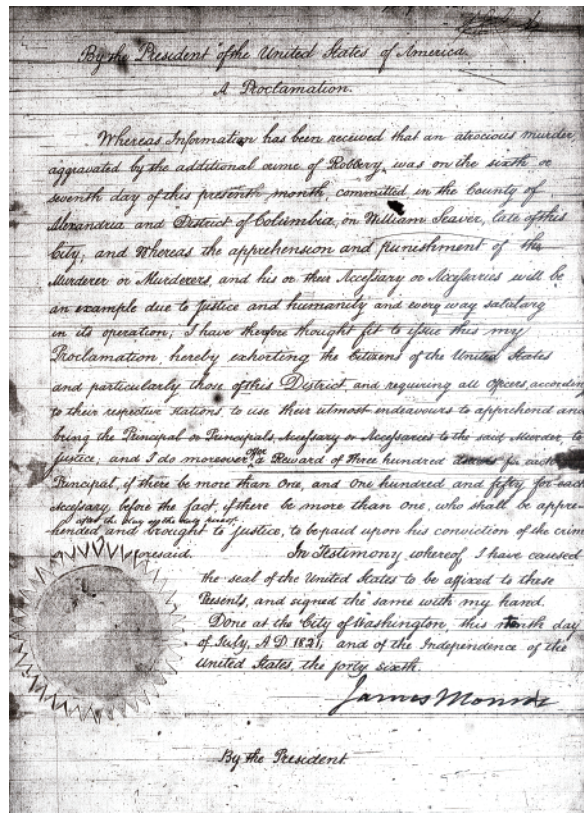 By the President of the United States of America.
A Proclamation.
Whereas Information has been received that an atrocious murder,
aggravated by the additional crime of Robbery, was on the sixth or
seventh day of this present month, committed in the County of
Alexandria and District of Columbia, on William Seaver, late of this
City; and whereas the apprehension and punishment of the
Murderer or Murderers, and his or their Accessary or Accessaries will be
an example due to justice and humanity and every way salutary
in its operation; I have therefore thought fit to issue this my
Proclamation, hereby exhorting the Citizens of the United States
and particularly those of this District and requiring all Officers, accordin
to their respective stations, to use their utmost endeavours to apprehend and
bring the Principal or Principals, Accessary or Accessaries to the said Murder, to
justice, and I do moreover offer a Reward of three hundred dollars for each
Principal, if there be more than One, and One hundred and fifty for each
Accessary, before the fact, if there be more than one, who shall be appre-
after the day of the date hereof
hended and brought to justice, to be paid upon his conviction of the crime
aforesaid. In Testimony whereof, I have caused
the seal of the United States to be affixed to these
Presents, and signed the same with my hand.
Done at the City of Washington, this tenth day
of July, A D 1821; and of the Independence of the
United States, the forty sixth.
James Monroe
By the President